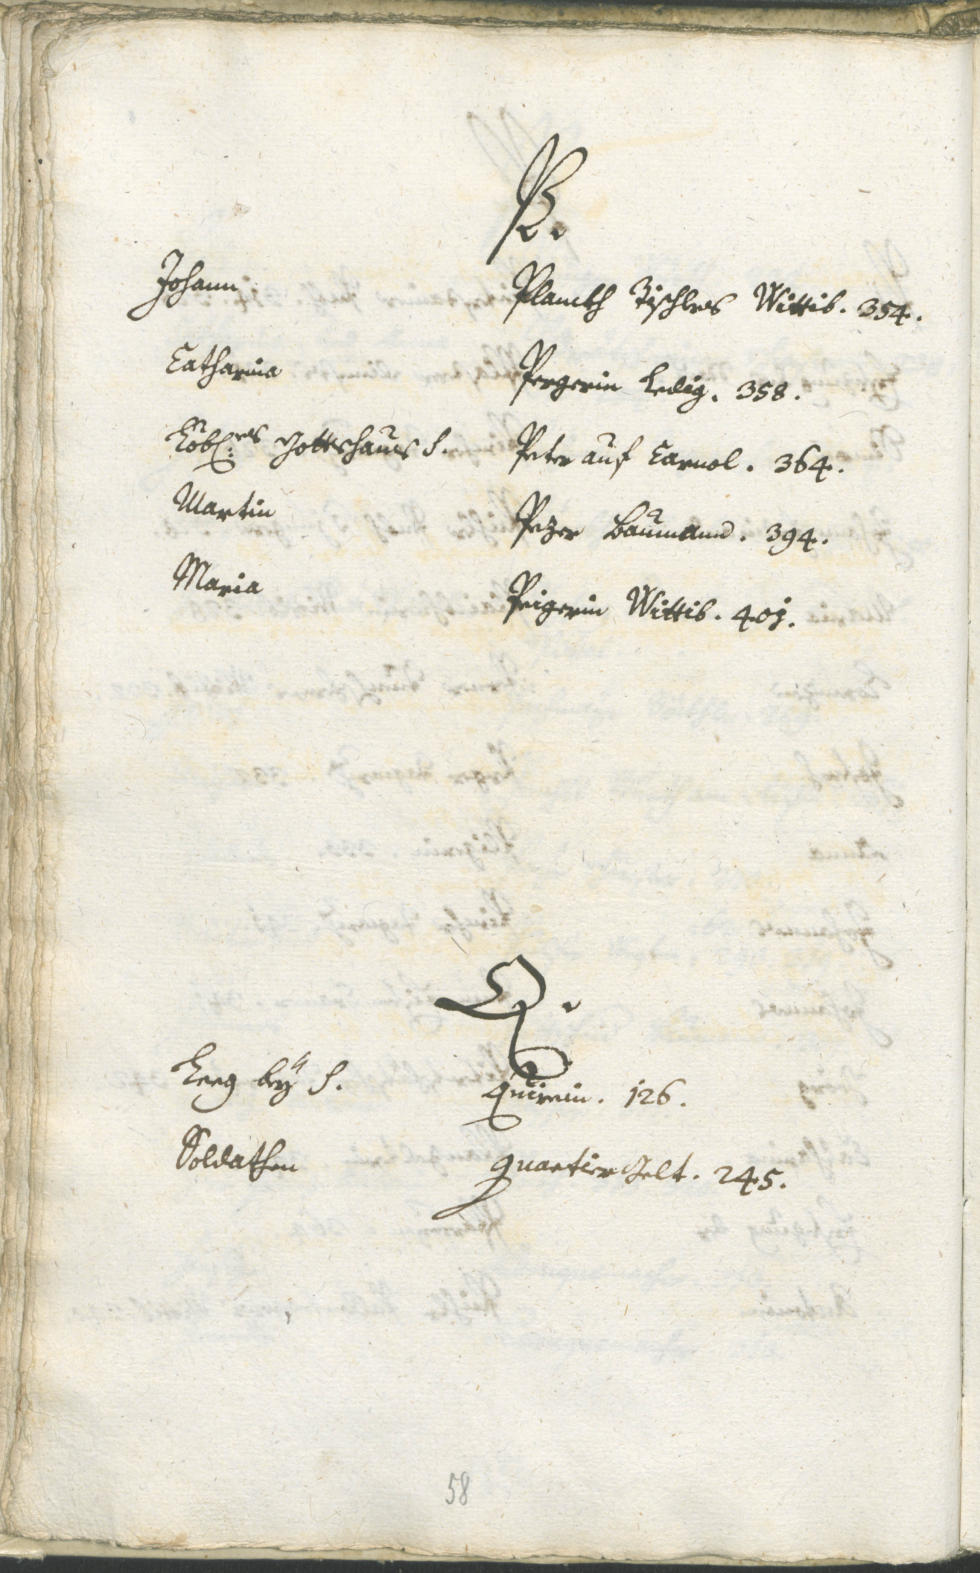 P.
Johann Planckh Tischlers Wittib. 354.
Catharina Pergerin Ledig. 358.
Löbl: es Gottshaus S. Peter auf Carnol. 364.
Martin Pezer Baumann. 394.
Maria Peigerin Wittib. 401.
Q.
Leeg beÿ S. Quirein. 126.
Soldathen quartier Gelt. 245.
58